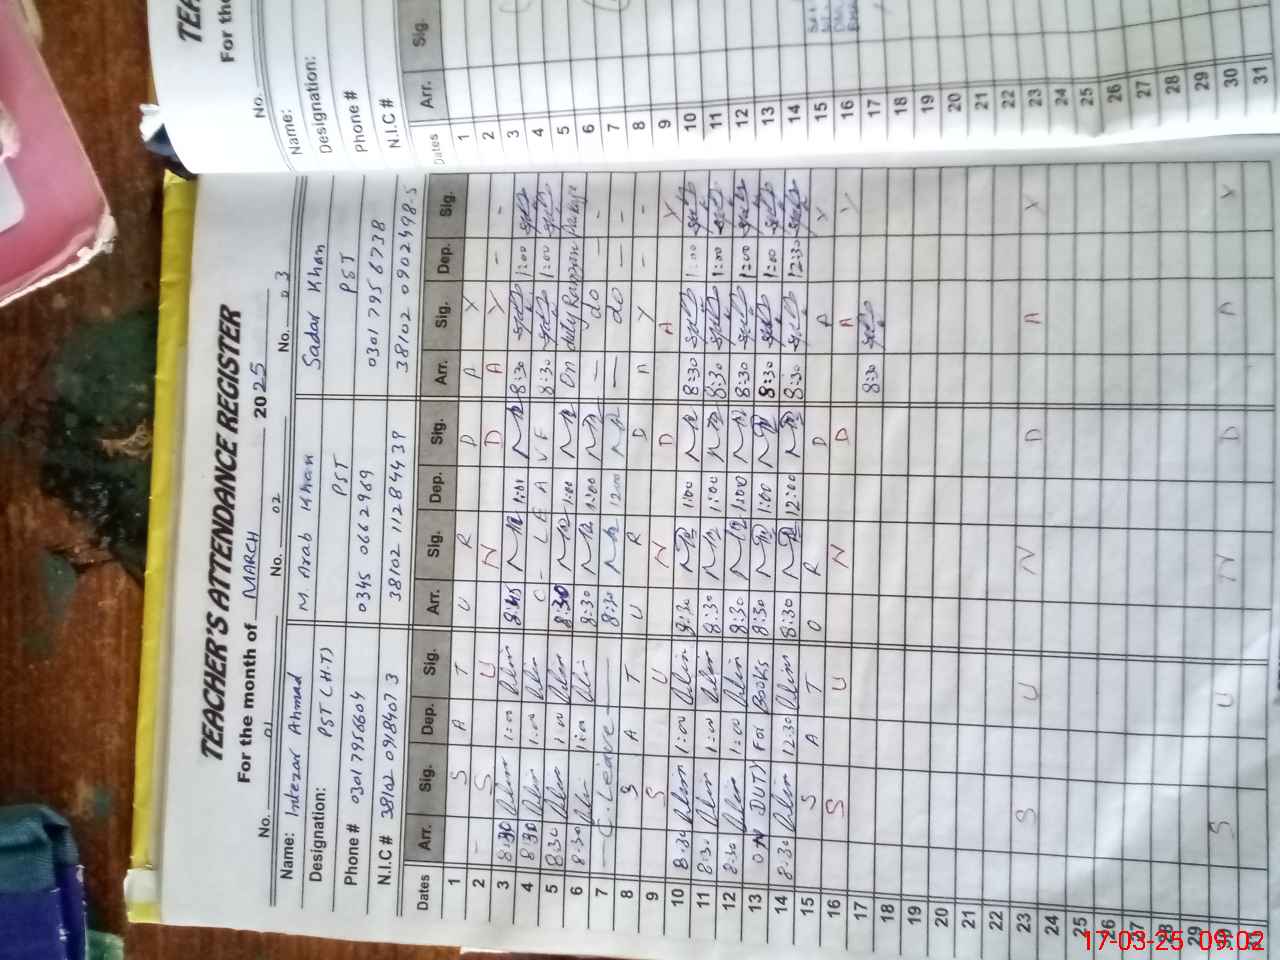 TEACHER'S ATTENDANCE REGISTER
For the month of MARCH 2025
No. 01 No. 02 No. 03
Name: Intezar Ahmad M. Arab Khan Sadar Khan
Designation: PST (H.T) PST PST
Phone # 0301 7956604 0345 0662969 0301 7956738
N.I.C # 38102 0918407 3 38102 1128443 9 38102 0902498-5
Dates Arr. Sig. Dep. Sig. Arr. Sig. Dep. Sig. Arr. Sig. Dep. Sig.
1 - S A T U R D A Y
2 S U N D A Y -
3 8:30 1:00 8:45 1:01 8:30 1:00
4 8:30 1:00 C - L E A V E 8:30 1:00
5 8:30 1:00 8:30 1:00 On duty Ramzan package
6 8:30 1:00 8:30 1:00 — do — -
7 — C. Leave — 8:30 12:00 — do — -
8 S A T U R D A Y - -
9 S U N D A Y
10 8:30 1:00 8:30 1:00 8:30 1:00
11 8:30 1:00 8:30 1:00 8:30 1:00
12 8:30 1:00 8:30 1:00 8:30 1:00
13 ON DUTY For Books 8:30 1:00 8:30 1:00
14 8:30 12:30 8:30 12:00 8:30 12:30
15 S A T U R D A Y
16 S U N D A Y
17 8:30
18
19
20
21
22
23 S U N D A Y
24
25
26
27
28
29
30 S U N D A Y
31
TEA
For the
No.
Name:
Designation:
Phone #
N.I.C #
Dates Arr. Sig.
1
2
3
4
5
6
7
8
9
10
11
12
13
14
15
16
17
18
19
20
21
22
23
24
25
26
27
28
29
30
31
17-03-25 09:02